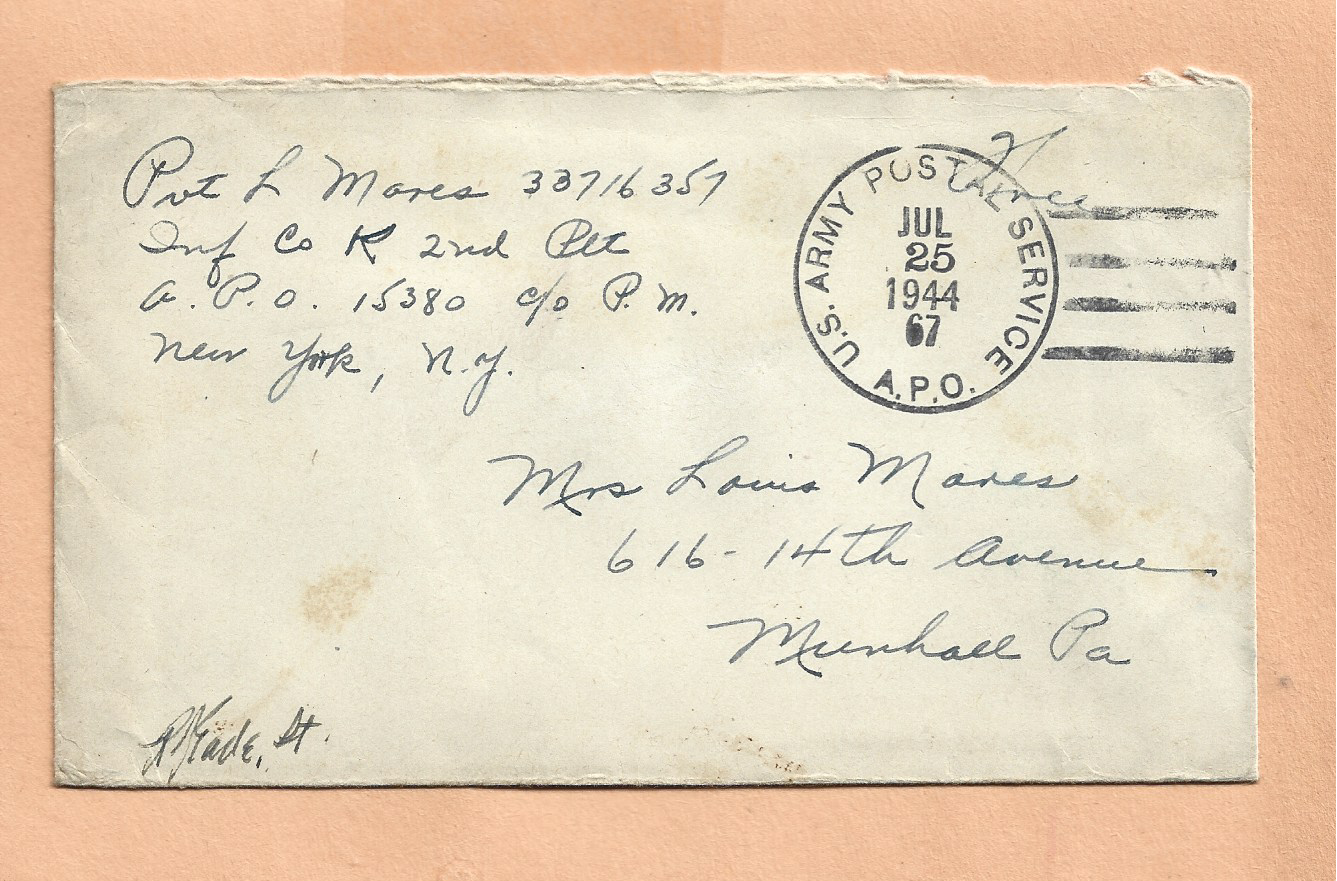 Pvt L Mares 33716357
Inf Co K 2nd Plt
A. P. O. 15380 c/o P. M.
New York, N.Y.
Free
U.S. ARMY POSTAL SERVICE
JUL
25
1944
67
A.P.O.
Mrs Louis Mares
616-14th Avenue
Munhall Pa